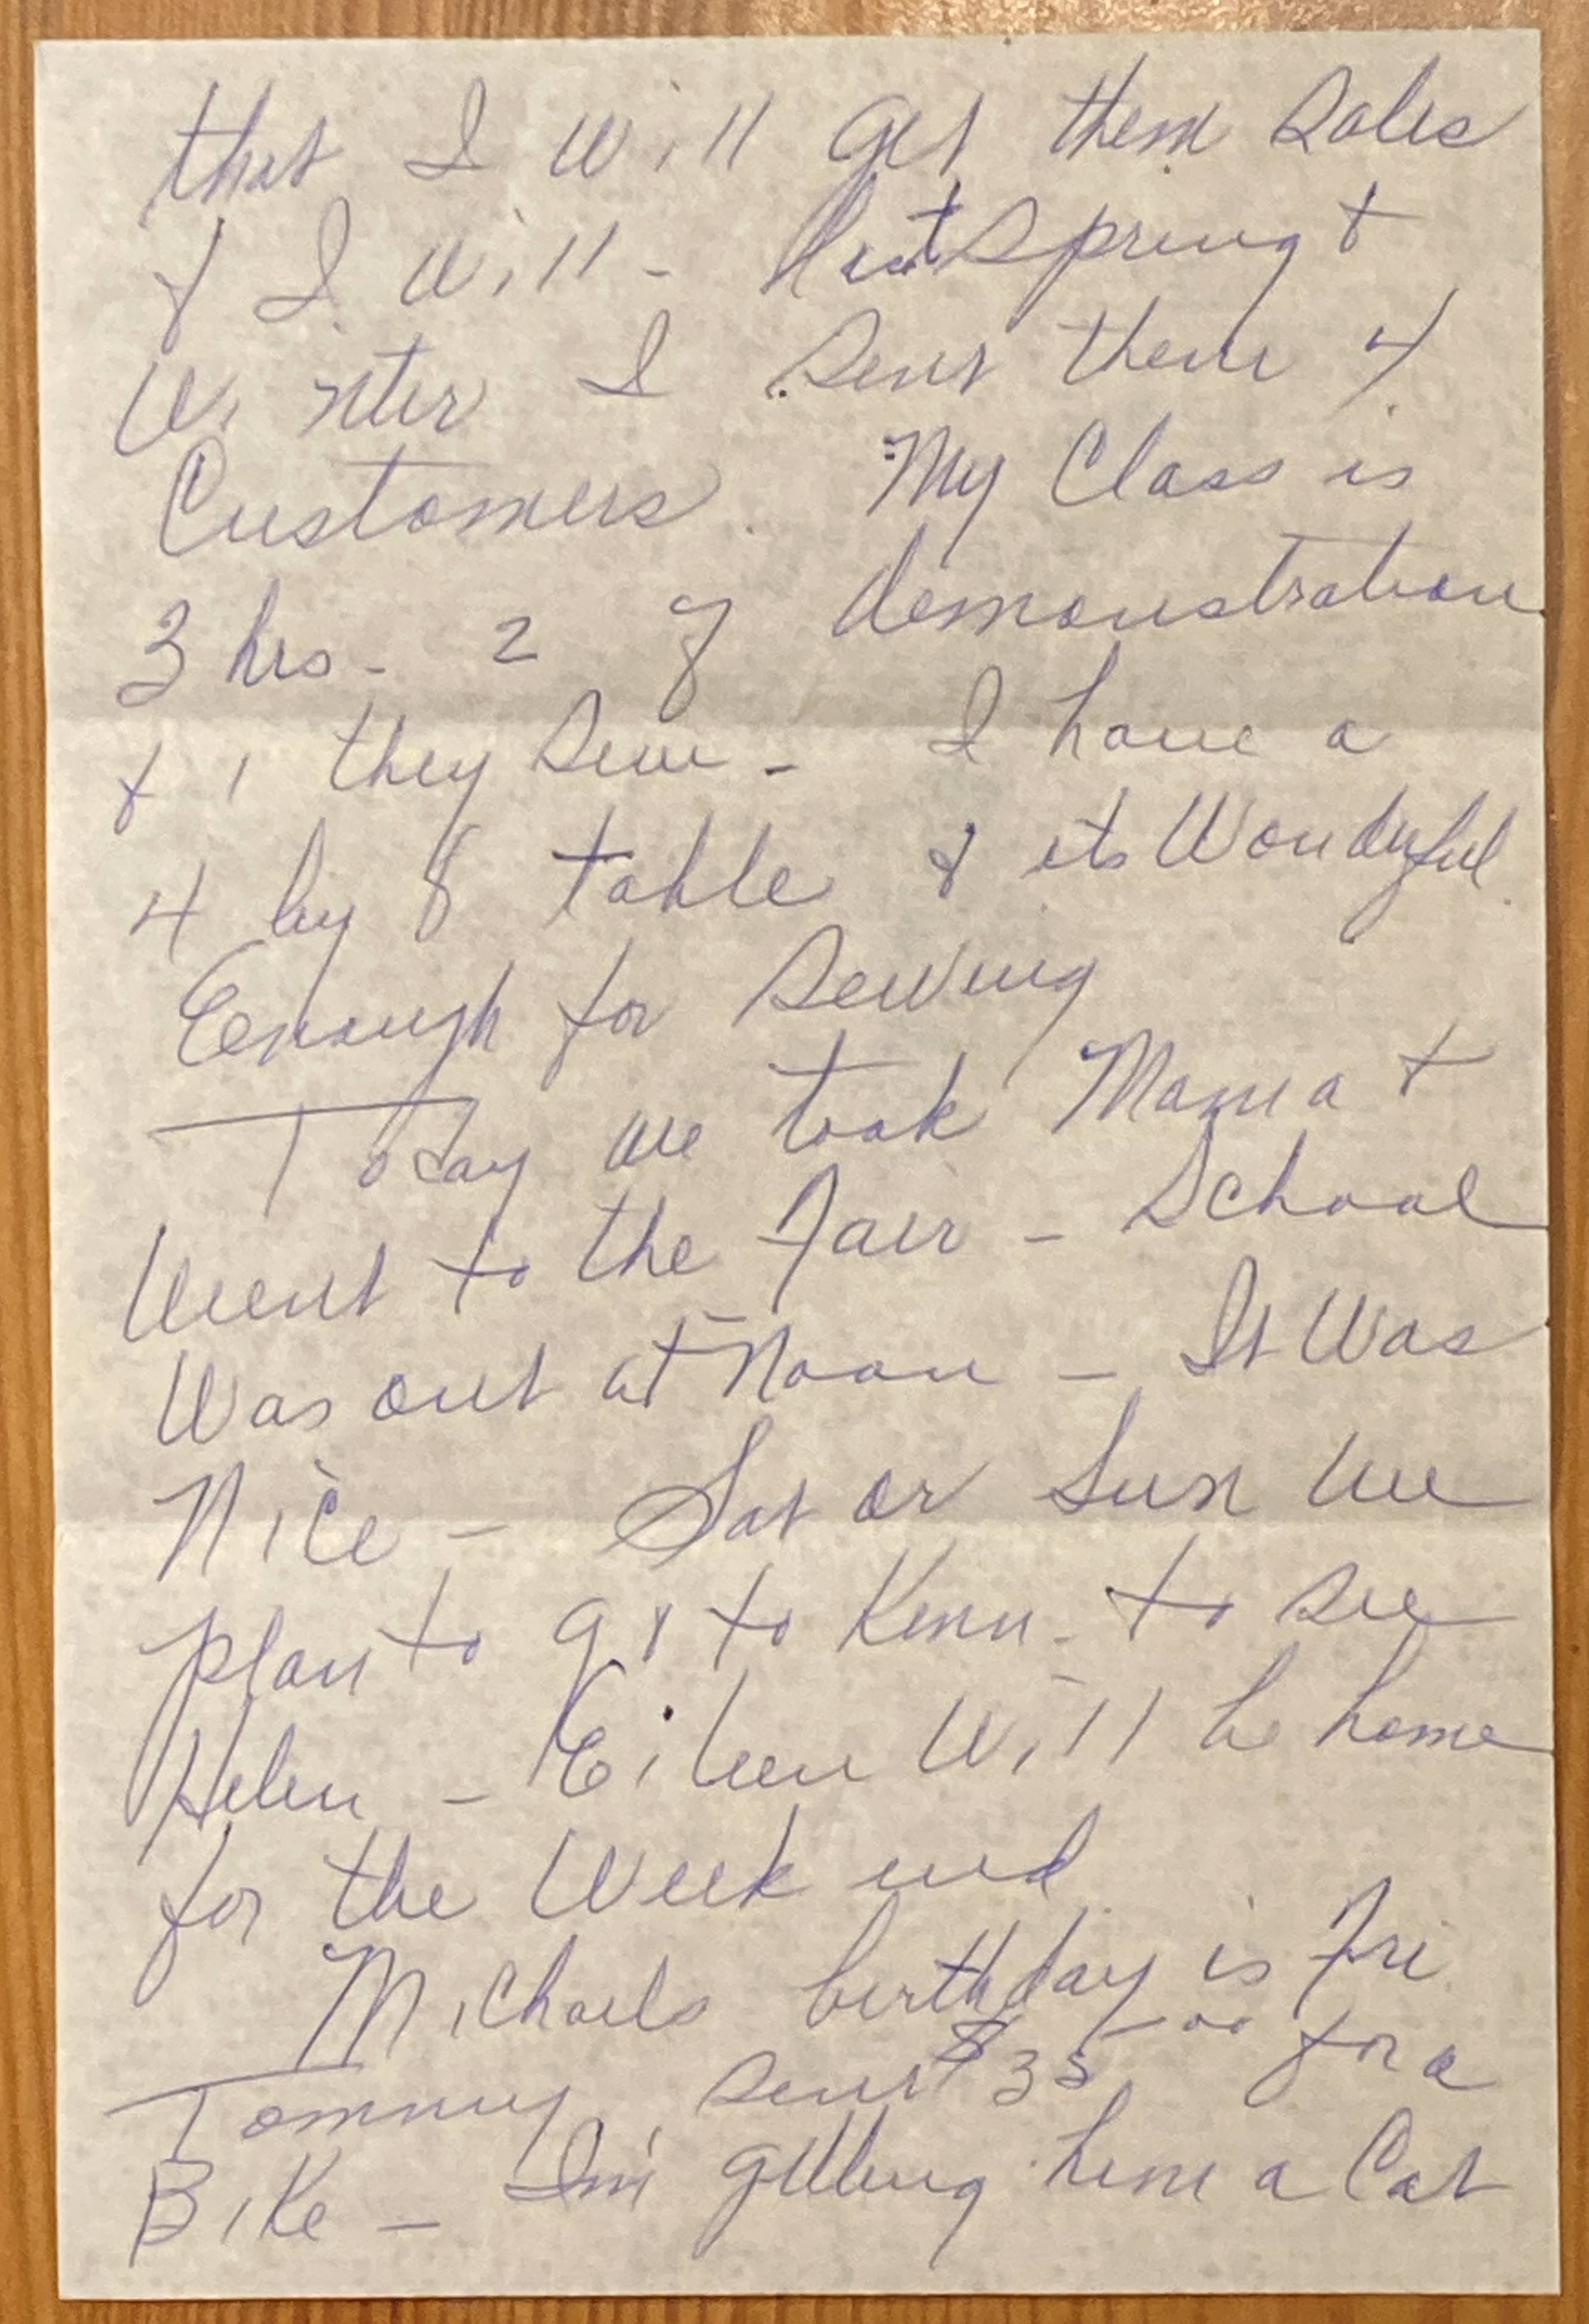 that I will get them Sales
& I Will - last Spring &
Winter I Sent them 4
Customers. My Class is
3 hrs - 2 of demonstration
& 1 they Sew - I have a
4 by 8 table & its Wonderful
Enough for Sewing
Today we took Mama &
Went to the Fair - School
Was out at Noon - It Was
Nice - Sat or Sun We
plan to go to Kenn. to see
Helen - Eileen Will be home
for the Week end
Michaels birthday is Fri
Tommy Sent $35.00 for a
Bike - Im getting him a Cat